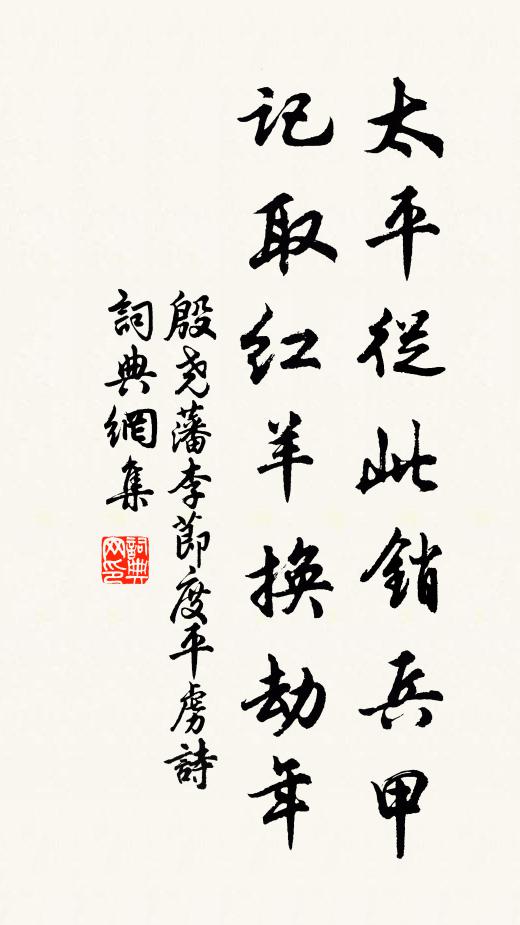 太平從此銷兵甲
記取红羊換劫年
殷尧藩李節度平虜詩
詞典網集
詞典網印